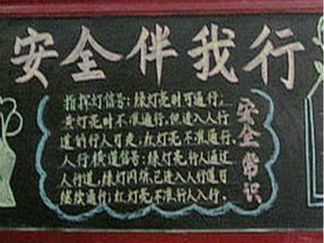 安全伴我行
指挥灯信号:绿灯亮时可通行;
黄灯亮时不准通行,但进入人行
道的行人可走,红灯亮不准通行、
人行横道信号:绿灯亮行人通过
人行道,绿灯闪烁已进入人行道可
继续通行;红灯亮不准行人入行.
安全常识